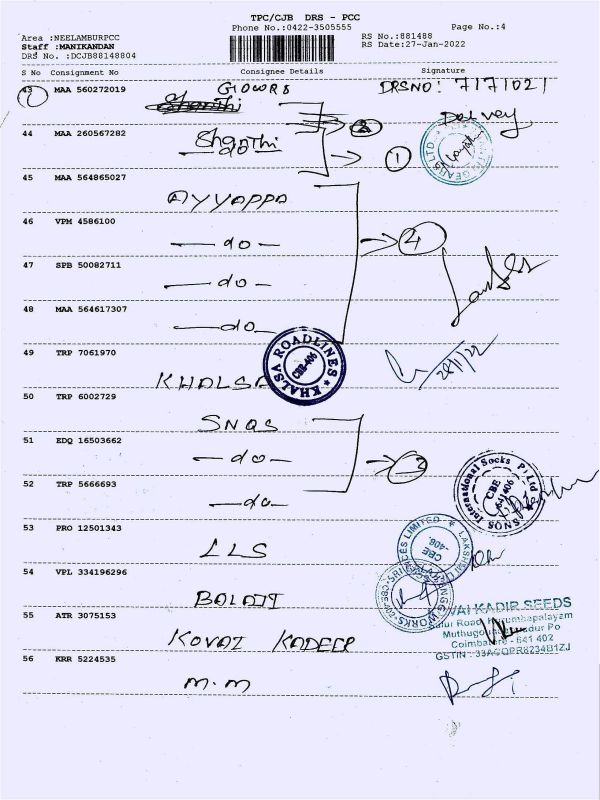 TPC/CJB DRS - PCC
Phone No.:0422-3505555 Page No.:4
Area :NEELAMBURPCC RS No.:881488
Staff :MANIKANDAN RS Date:27-Jan-2022
DRS No. :DCJB88148804
S No Consignment No Consignee Details Signature
43 MAA 560272019 DRSNO: 7171021
Shanthi
44 MAA 260567282 Shanthi
do 1
45 MAA 564865027
AYYAPPA
46 VPM 4586100
do 4
47 SPB 50082711
do
48 MAA 564617307
do
49 TRP 7061970
KHALSA
KHALSA ROADLINES CBE-406
50 TRP 6002729
SNQS
51 EDQ 16503662
do
52 TRP 5666693
do
SNQS International Socks P Ltd CBE 641406
53 PRO 12501343
LLS
54 VPL 334196296
BALAJI
55 ATR 3075153
KOVAI KADEER
KOVAI KADIR SEEDS
Coimbatore - 641 402
GSTIN : 33ACQPR8234B1ZJ
56 KRR 5224535
M.M